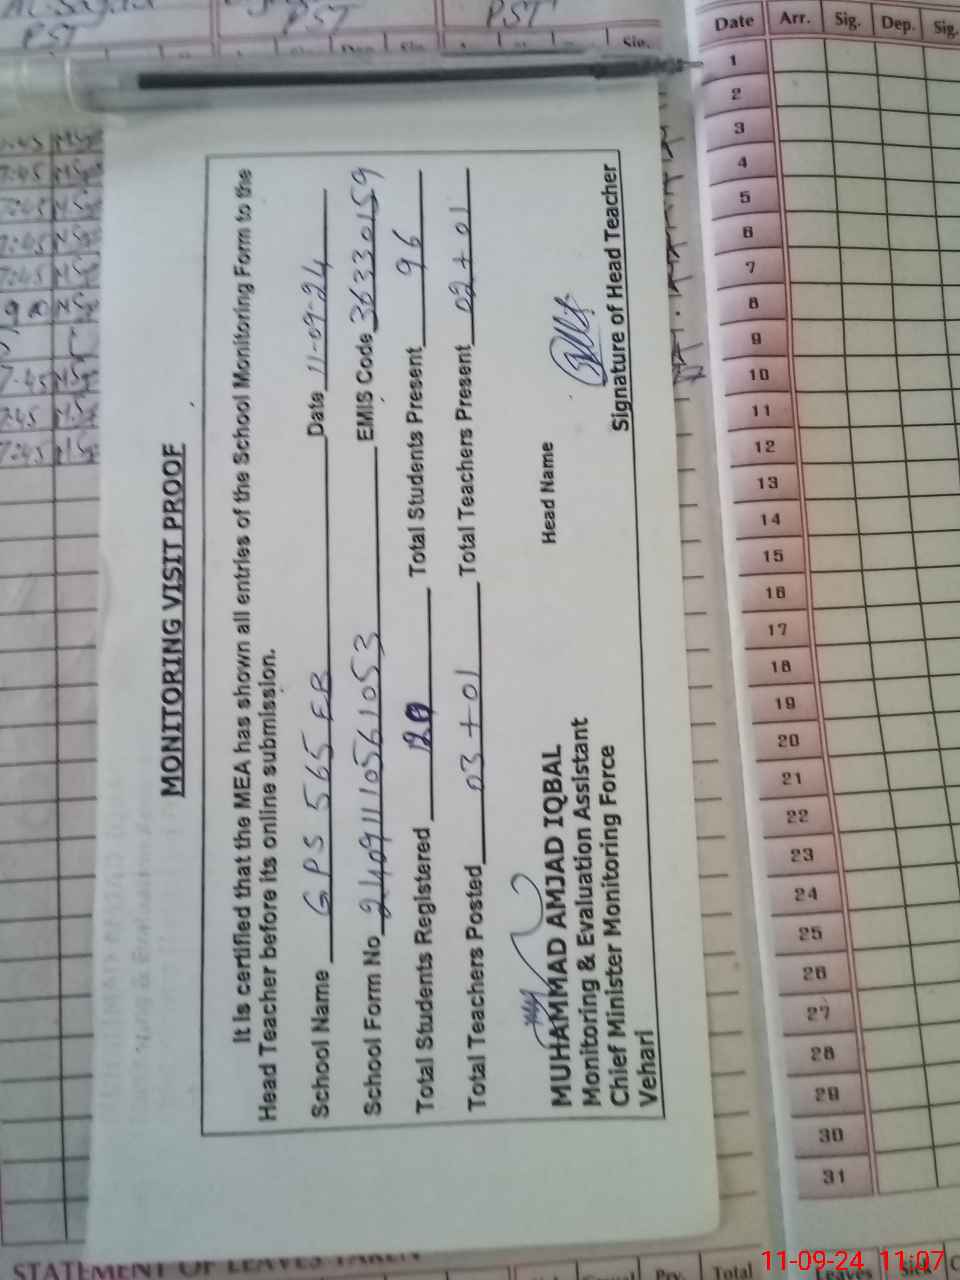 MONITORING VISIT PROOF
It is certified that the MEA has shown all entries of the School Monitoring Form to the
Head Teacher before its online submission.
School Name GPS 565 EB Date 11-09-24
School Form No 24091110561053 EMIS Code 36330159
Total Students Registered Total Students Present 96
Total Teachers Posted 03+01 Total Teachers Present 02+01
MUHAMMAD AMJAD IQBAL Head Name
Monitoring & Evaluation Assistant
Chief Minister Monitoring Force Signature of Head Teacher
Vehari
PST PST PST
Date Arr. Sig. Dep. Sig.
1
2
3
4
5
6
7
8
9
10
11
12
13
14
15
16
17
18
19
20
21
22
23
24
25
26
27
28
29
30
31
7:45
7:45
7:45
7:45
7:45
7:45
7:45
STATEMENT OF LEAVES TAKEN
Prv. Total Leaves Sick
11-09-24 11:07